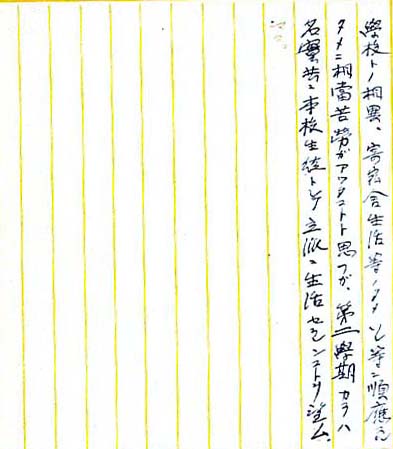 學校トノ相異、寄宿舍生活等ノタメソレ等ニ順應スル
タメニ相當苦勞ガアッタコトト思フガ、第二學期カラハ
名實共ニ本校生徒トシテ立派ニ生活セラレンコトヲ望ム。